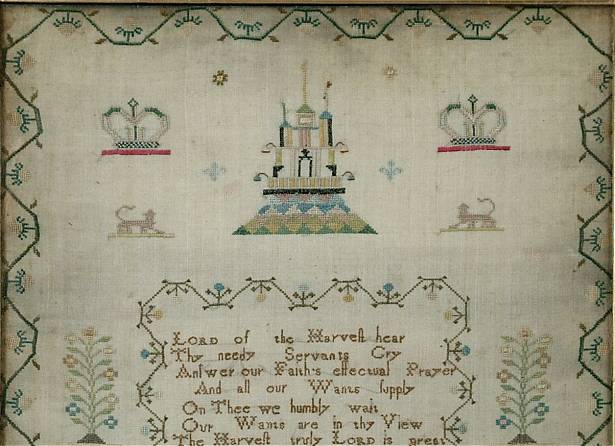 LORD of the Harveſt hear
Thy needy Servants Cry
Anſwer our Faith's effectual Prayer
And all our Wants ſupply
On Thee we humbly wait
Our Wants are in thy View
The Harveſt truly LORD is great